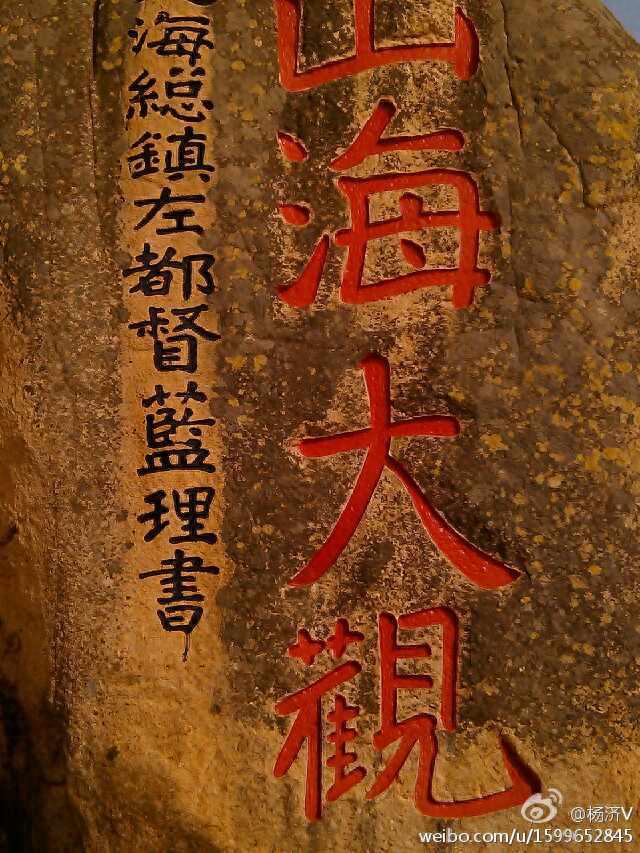 山海大觀
海総鎮左都督藍理書
@杨济V
weibo.com/u/1599652845